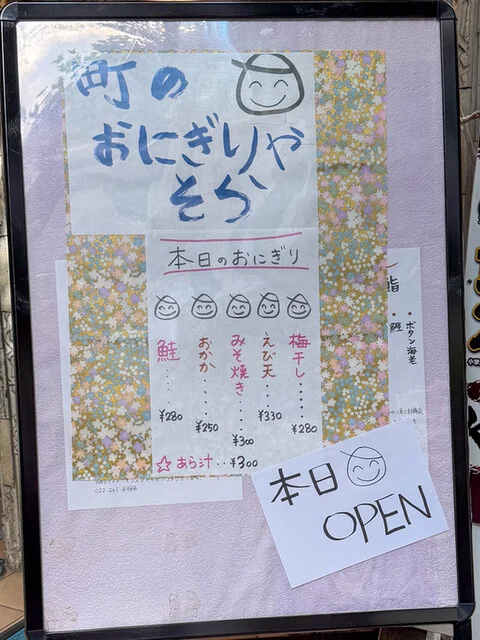 町の
おにぎりや
そら
本日のおにぎり
梅干し・・・・¥280
えび天・・・¥330
みそ焼き・・・¥300
おかか・・・・¥250
鮭・・・・¥280
☆あら汁・・¥300
本日
OPEN
・ボタン海老